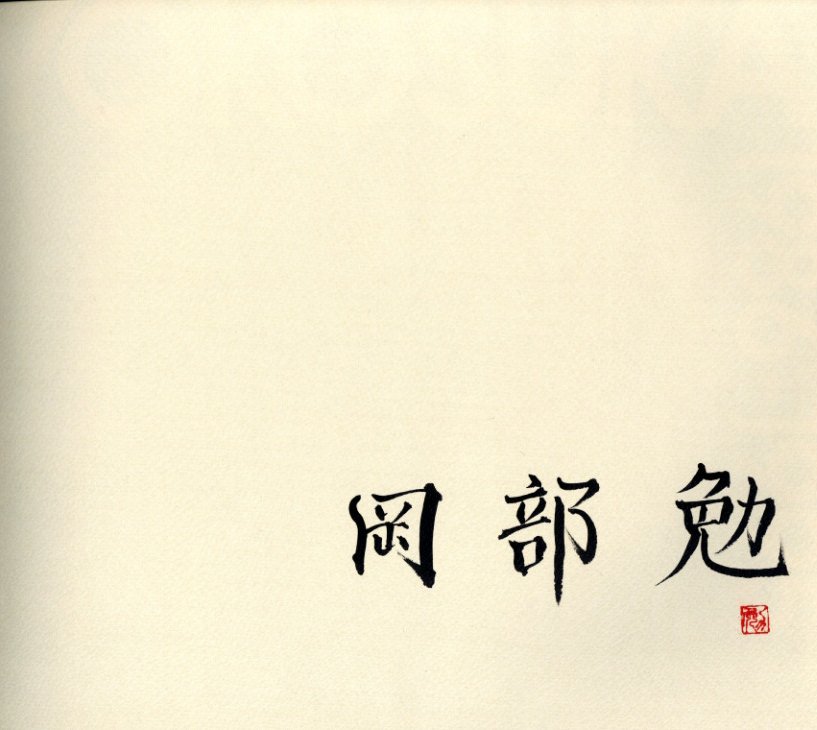 岡部勉